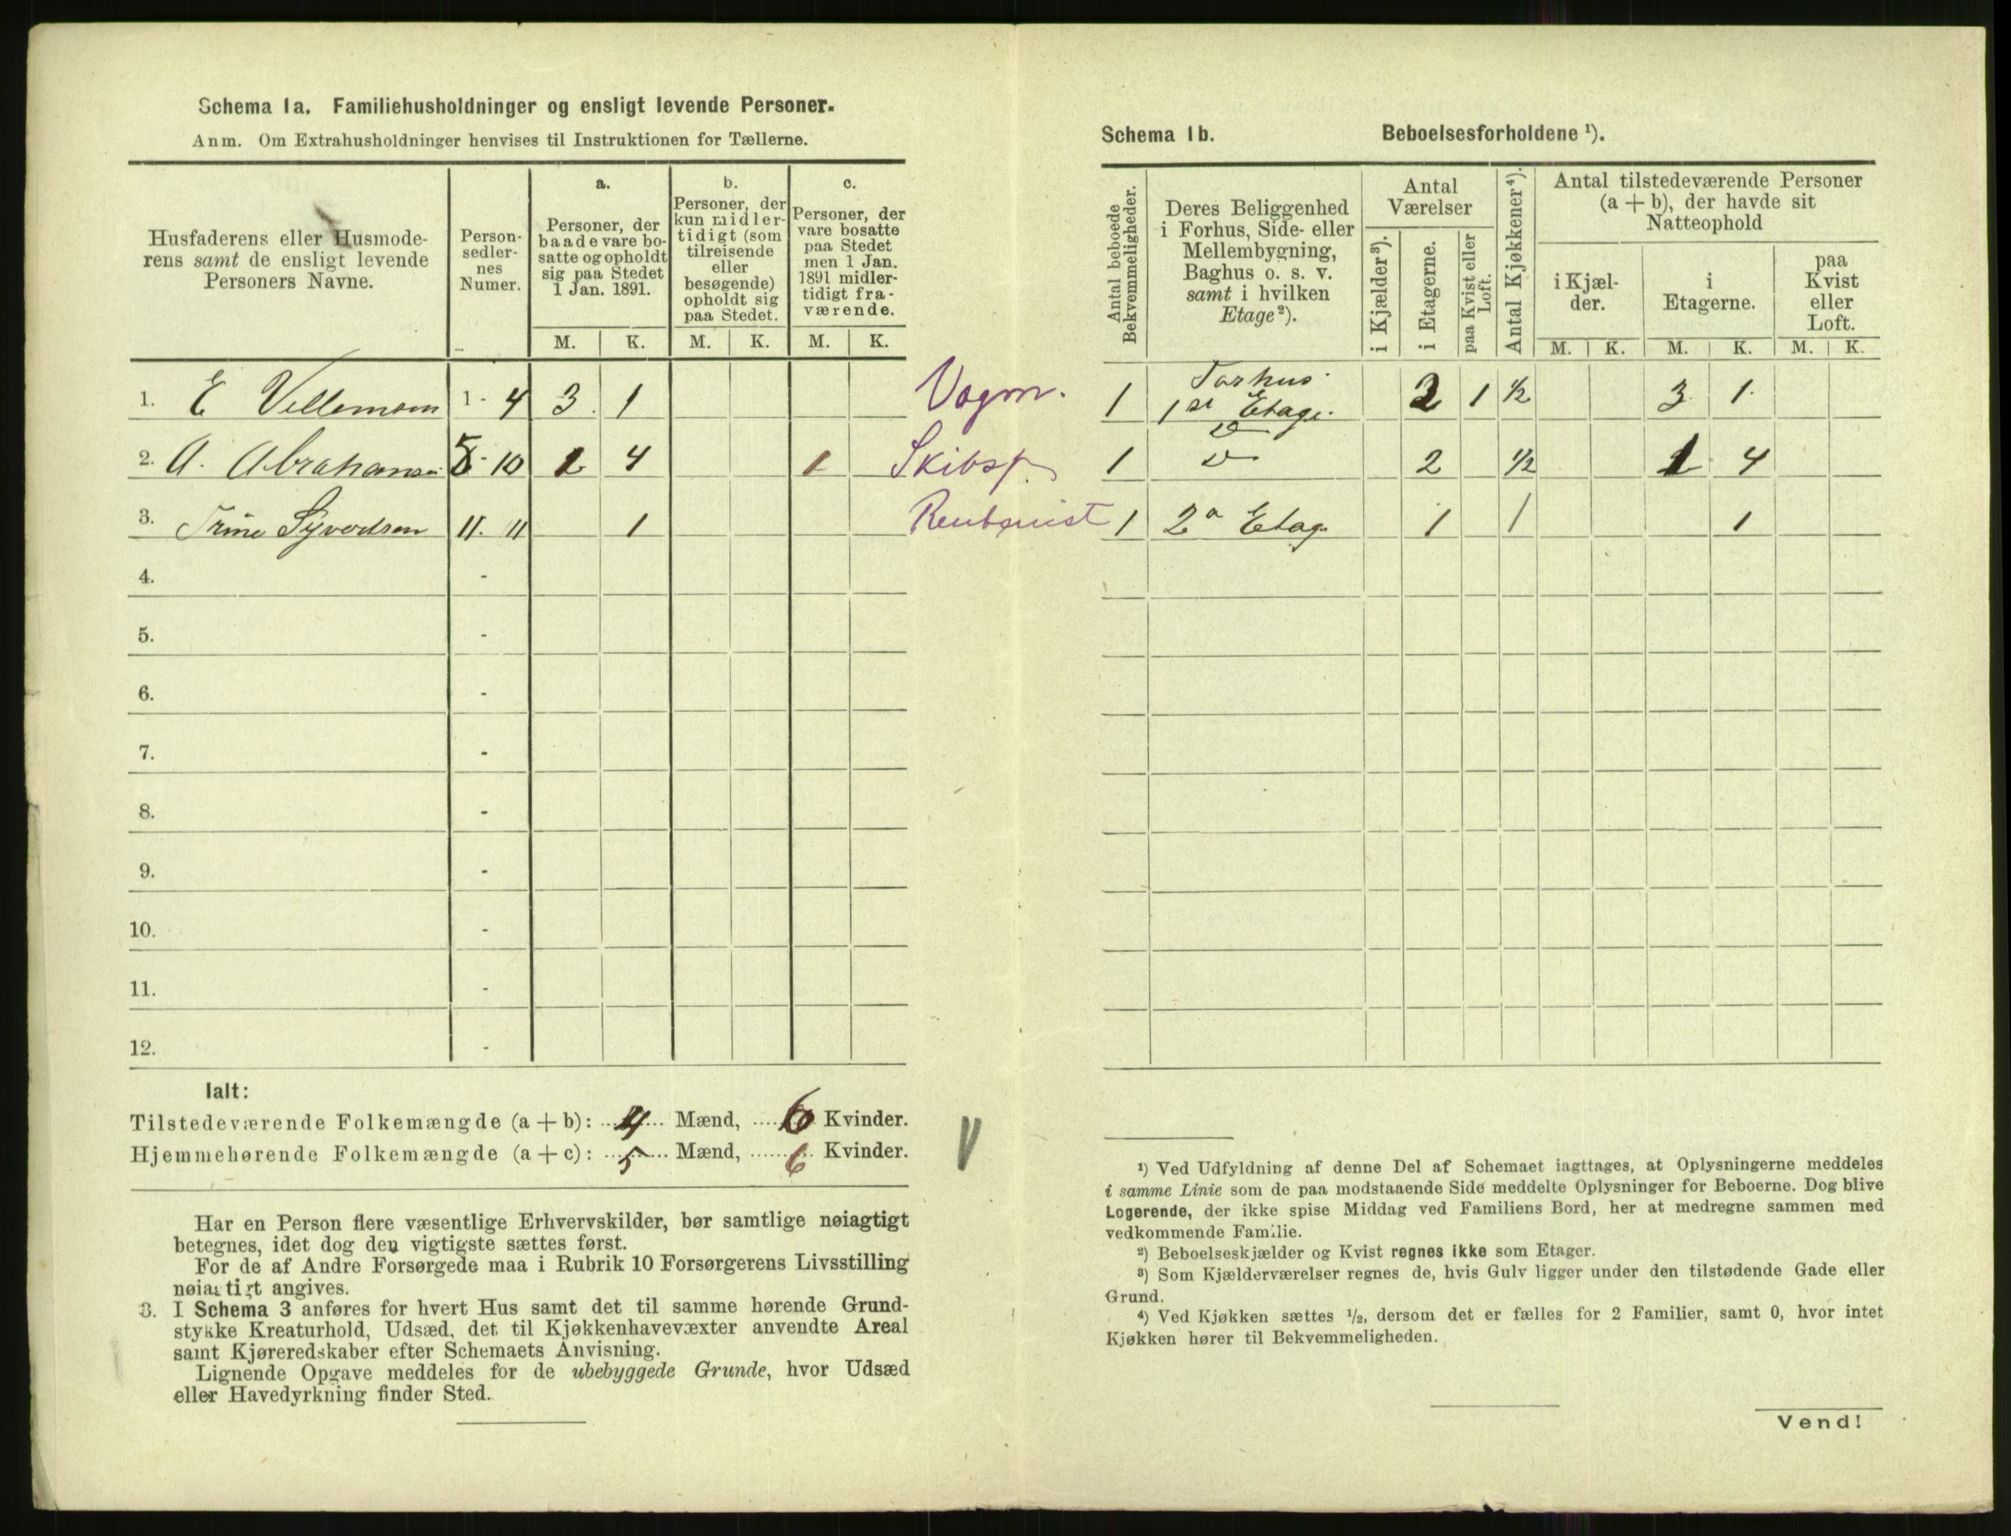 Schema 1a. Familiehusholdninger og ensligt levende Personer.
Anm. Om Extrahusholdninger henvises til Instruktionen for Tællerne.
Husfaderens eller Husmode-
rens samt de ensligt levende
Personers Navne.
Person-
sedler-
nes
Numer.
a.
Personer, der
baade vare bo-
satte og opholdt
sig paa Stedet
1 Jan. 1891.
b.
Personer, der
kun midler-
tidigt (som
tilreisende
eller
besøgende)
opholdt sig
paa Stedet.
c.
Personer, der
vare bosatte
paa Stedet
men 1 Jan.
1891 midler-
tidigt fra-
værende.
M. K. M. K. M. K.
1. E Villemom 1 - 4 3 1 Vogm.
2. A. Abrahams 5 - 10 1 4 1 Skibsf.
3. Trine Syvertsen 11 - 11 1
4. -
5. -
6. -
7. -
8. -
9. -
10. -
11. -
12. -
Ialt:
Tilstedeværende Folkemængde (a + b): 4 Mænd, 6 Kvinder.
Hjemmehørende Folkemængde (a + c): 5 Mænd, 6 Kvinder.
Har en Person flere væsentlige Erhvervskilder, bør samtlige nøiagtigt
betegnes, idet dog den vigtigste sættes først.
For de af Andre Forsørgede maa i Rubrik 10 Forsørgerens Livsstilling
nøiagtigt angives.
3. I Schema 3 anføres for hvert Hus samt det til samme hørende Grund-
stykke Kreaturhold, Udsæd, det til Kjøkkenhavevæxter anvendte Areal
samt Kjøreredskaber efter Schemaets Anvisning.
Lignende Opgave meddeles for de ubebyggede Grunde, hvor Udsæd
eller Havedyrkning finder Sted.
Schema 1b. Beboelsesforholdene ¹).
Antal beboede
Bekvemmeligheder.
Deres Beliggenhed
i Forhus, Side- eller
Mellembygning,
Baghus o. s. v.
samt i hvilken
Etage ²).
Antal
Værelser
i Kjælder ³).
i Etagerne.
paa Kvist eller
Loft.
Antal Kjøkkener ⁴).
Antal tilstedeværende Personer
(a + b), der havde sit
Natteophold
i Kjæl-
der.
i
Etagerne.
paa
Kvist
eller
Loft.
M. K. M. K. M. K.
1 Forhus
1st Etage. 2 1 ½ 3 1
1 2 ½ 1 4
1 2a Etag. 1 1 1
¹) Ved Udfyldning af denne Del af Schemaet iagttages, at Oplysningerne meddeles
i samme Linie som de paa modstaaende Side meddelte Oplysninger for Beboerne. Dog blive
Logerende, der ikke spise Middag ved Familiens Bord, her at medregne sammen med
vedkommende Familie.
²) Beboelseskjælder og Kvist regnes ikke som Etager.
³) Som Kjælderværelser regnes de, hvis Gulv ligger under den tilstødende Gade eller
Grund.
⁴) Ved Kjøkken sættes ½, dersom det er fælles for 2 Familier, samt 0, hvor intet
Kjøkken hører til Bekvemmeligheden.
Vend!